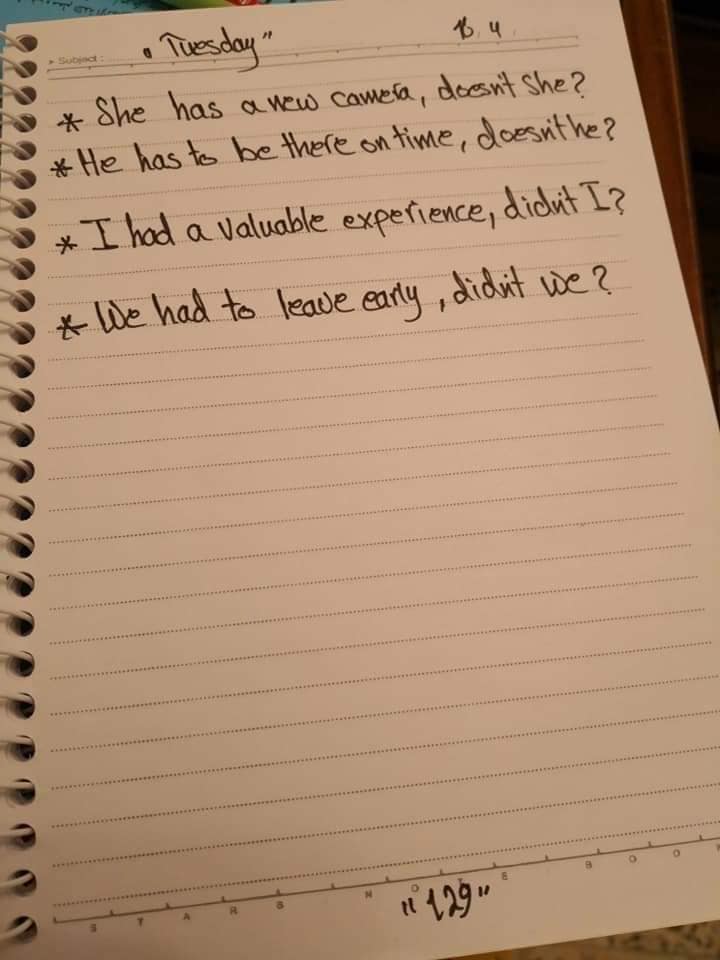 Subject : "Tuesday"
* She has a new camera, doesn't she?
* He has to be there on time, doesn't he?
* I had a valuable experience, didn't I?
* We had to leave early, didn't we?
STARS NOTEBOOK
"129"